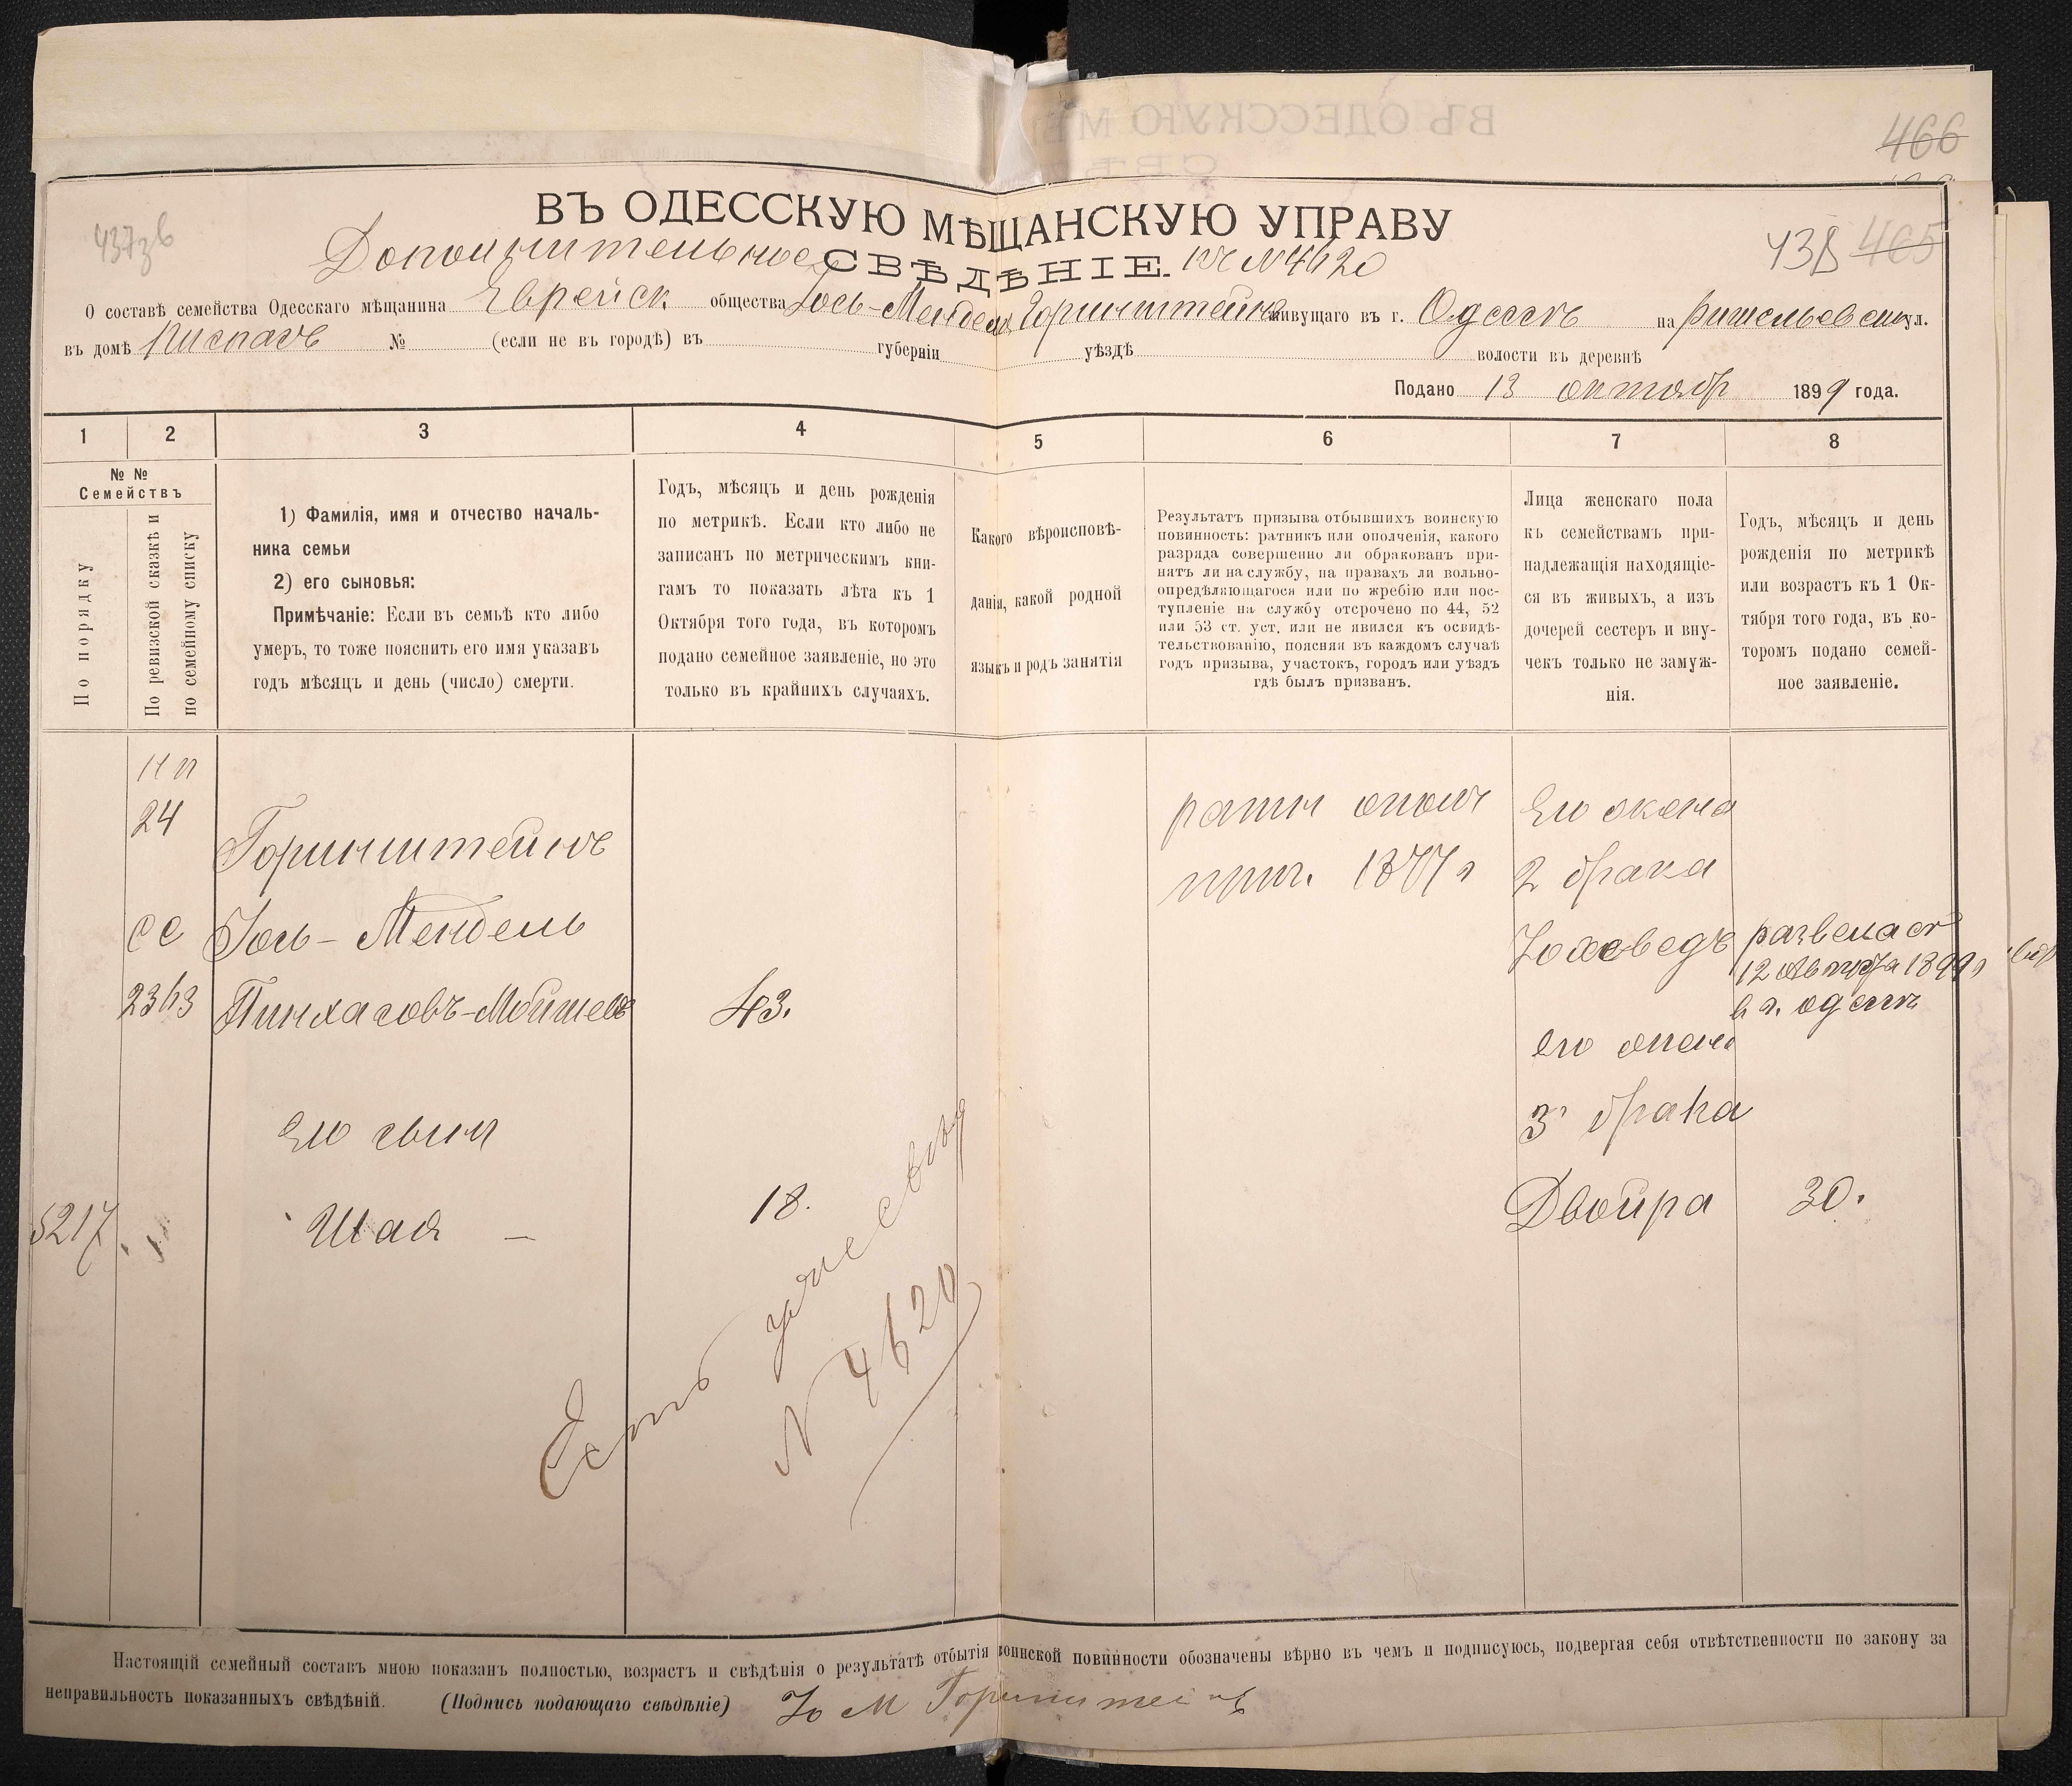 466
437зв
438 465
ВЪ ОДЕССКУЮ МѢЩАНСКУЮ УПРАВУ
Дополнительное СВѢДѢНІЕ. къ № 4620
О составѣ семейства Одесскаго мѣщанина Еврейск общества Іось-Мендель Горинштейнъ живущаго въ г. Одессѣ на Ришельевской ул.
въ домѣ № (если не въ городѣ) въ губерніи уѣздѣ волости въ деревнѣ
Подано 13 октябр 1899 года.
1 2 3 4 5 6 7 8
№ №
Семействъ
По порядку
По ревизской сказкѣ и
по семейному списку
1) Фамилія, имя и отчество началь-
ника семьи
2) его сыновья:
Примѣчаніе: Если въ семьѣ кто либо
умеръ, то тоже пояснить его имя указавъ
годъ мѣсяцъ и день (число) смерти.
Годъ, мѣсяцъ и день рожденія
по метрикѣ. Если кто либо не
записанъ по метрическимъ кни-
гамъ то показать лѣта къ 1
Октября того года, въ которомъ
подано семейное заявленіе, но это
только въ крайнихъ случаяхъ.
Какого вѣроисповѣ-
данія, какой родной
языкъ и родъ занятія
Результатъ призыва отбывшихъ воинскую
повинность: ратникъ или ополченія, какого
разряда совершенно ли обракованъ при-
нятъ ли на службу, на правахъ ли вольно-
опредѣляющагося или по жребію или пос-
тупленіе на службу отсрочено по 44, 52
или 53 ст. уст. или не явился къ освидѣ-
тельствованію, поясняя въ каждомъ случаѣ
годъ призыва, участокъ, городъ или уѣздъ
гдѣ былъ призванъ.
Лица женскаго пола
къ семействамъ при-
надлежащія находящіе-
ся въ живыхъ, а изъ
дочерей сестеръ и вну-
чекъ только не замуж-
нія.
Годъ, мѣсяцъ и день
рожденія по метрикѣ
или возрастъ къ 1 Ок-
тября того года, въ ко-
торомъ подано семей-
ное заявленіе.
24
Горинштейнъ
сс Іось-Мендель
2363 Пинхасовъ-Мойшевъ 43.
ратн ополч
приз. 1877 г
Его жена
2 брака
Іохеведъ развелась
12 Августа 1899 г
в г. Одессѣ
его жена
3 брака
Двойра 30.
Его сынъ
5217 Шая – 18.
Есть
N 4620
Настоящій семейный составъ мною показанъ полностью, возрастъ и свѣдѣнія о результатѣ отбытія воинской повинности обозначены вѣрно въ чемъ и подписуюсь, подвергая себя отвѣтственности по закону за
неправильность показанныхъ свѣдѣній. (Подпись подающаго свѣдѣніе) Іо М Горинштейнъ